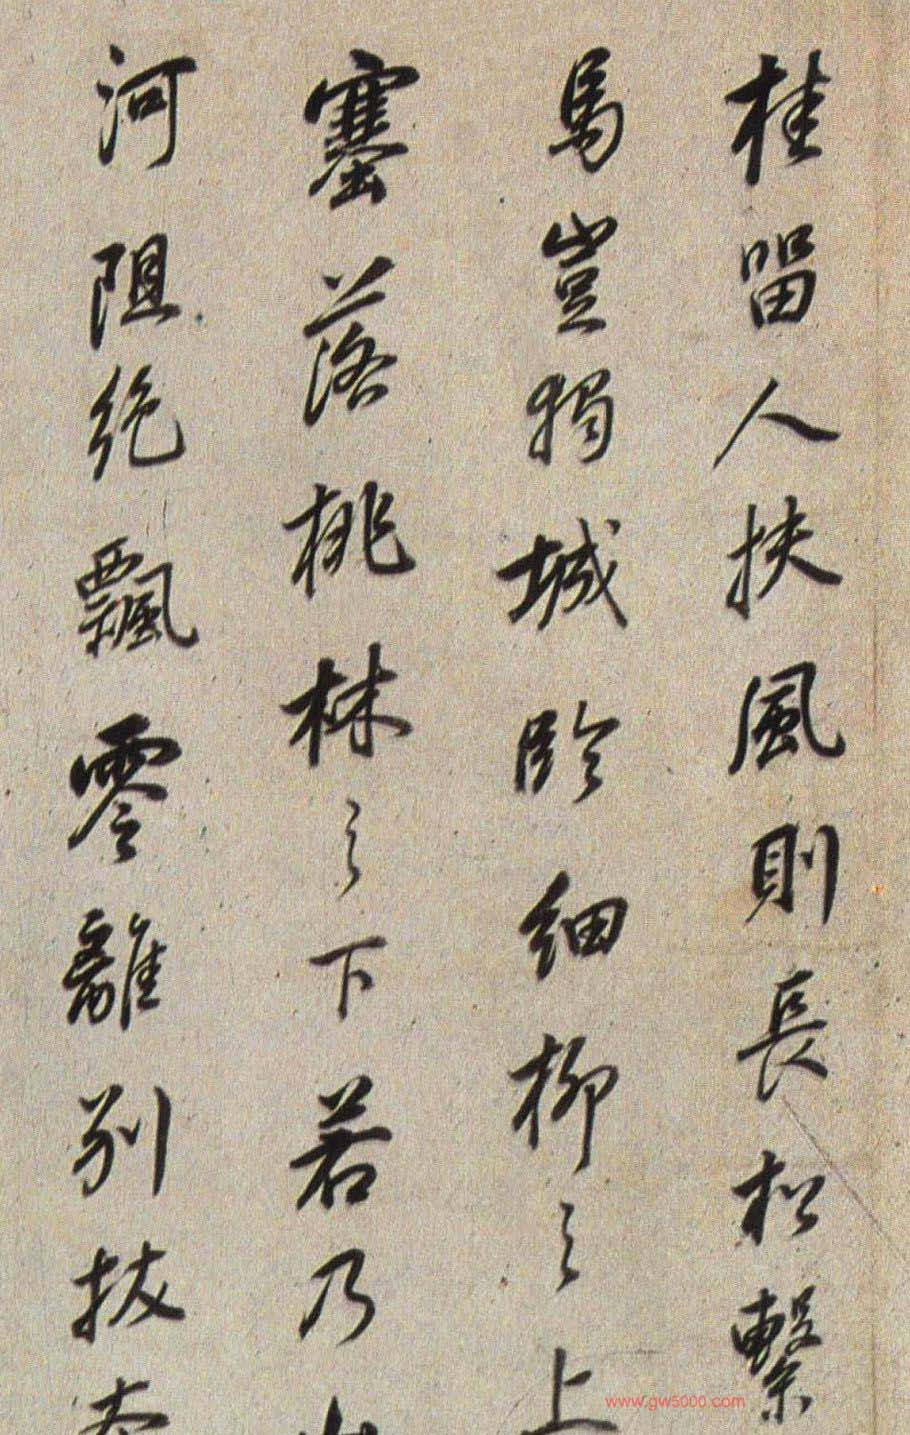 桂留人扶風則長松繫
馬豈獨城臨細柳之上
塞落桃林之下若乃
河阻絶飄零離別拔
www.gw5000.com